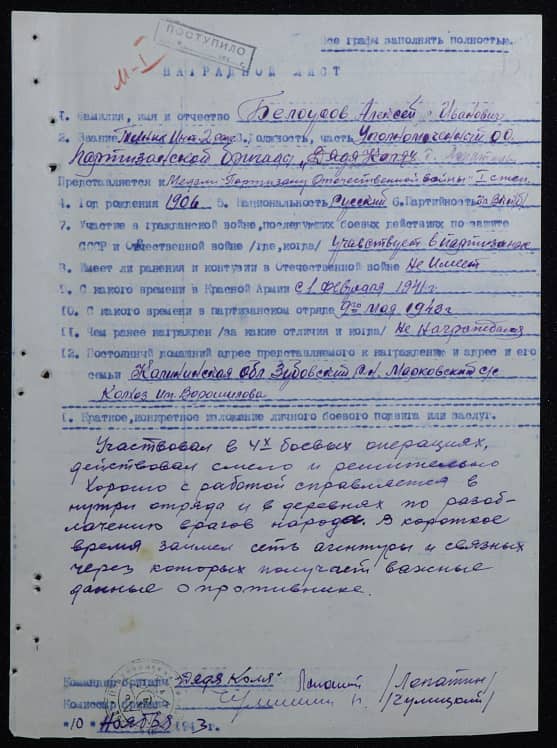 ПОСТУПИЛО
М-I
Все графы заполнять полностью.
НАГРАДНОЙ ЛИСТ
1. Фамилия, имя и отчество Белоусов Алексей Иванович
2. Звание Техник Инт. 2 ранг 3. Должность, часть Уполномоченный ОО
партизанской бригады "Дядя Коля"
Представляется к Медали "Партизану Отечественной войны" I степ.
4. Год рождения 1906 5. Национальность Русский 6. Партийность
7. Участие в гражданской войне, последующих боевых действиях по защите
СССР и Отечественной войне /где, когда/ Учавствует в партизанах
8. Имеет ли ранения и контузии в Отечественной войне Не Имеет
9. С какого времени в Красной Армии с 1 февраля 1941 г.
10. С какого времени в партизанском отряде 9го мая 1943 г
11. Чем ранее награжден /за какие отличия и когда/ Не Награждался
12. Постоянный домашний адрес представляемого к награждению и адрес и его
семьи Калининская обл Зубовский р-н. Марковский с/с
Колхоз им. Ворошилова
1. Краткое, конкретное изложение личного боевого подвига или заслуг.
Участвовал в 4х боевых операциях,
действовал смело и решительно
Хорошо с работой справляется в
нутри отряда и в деревнях по разоб-
лачению врагов народа. В короткое
время заимел сеть агентуры и связных
через которых получает важные
данные о противнике.
Командир бригады "Дядя Коля" Лопатин /Лопатин/
Комиссар бригады /Чулицкий/
"10" Ноября 1943 г.